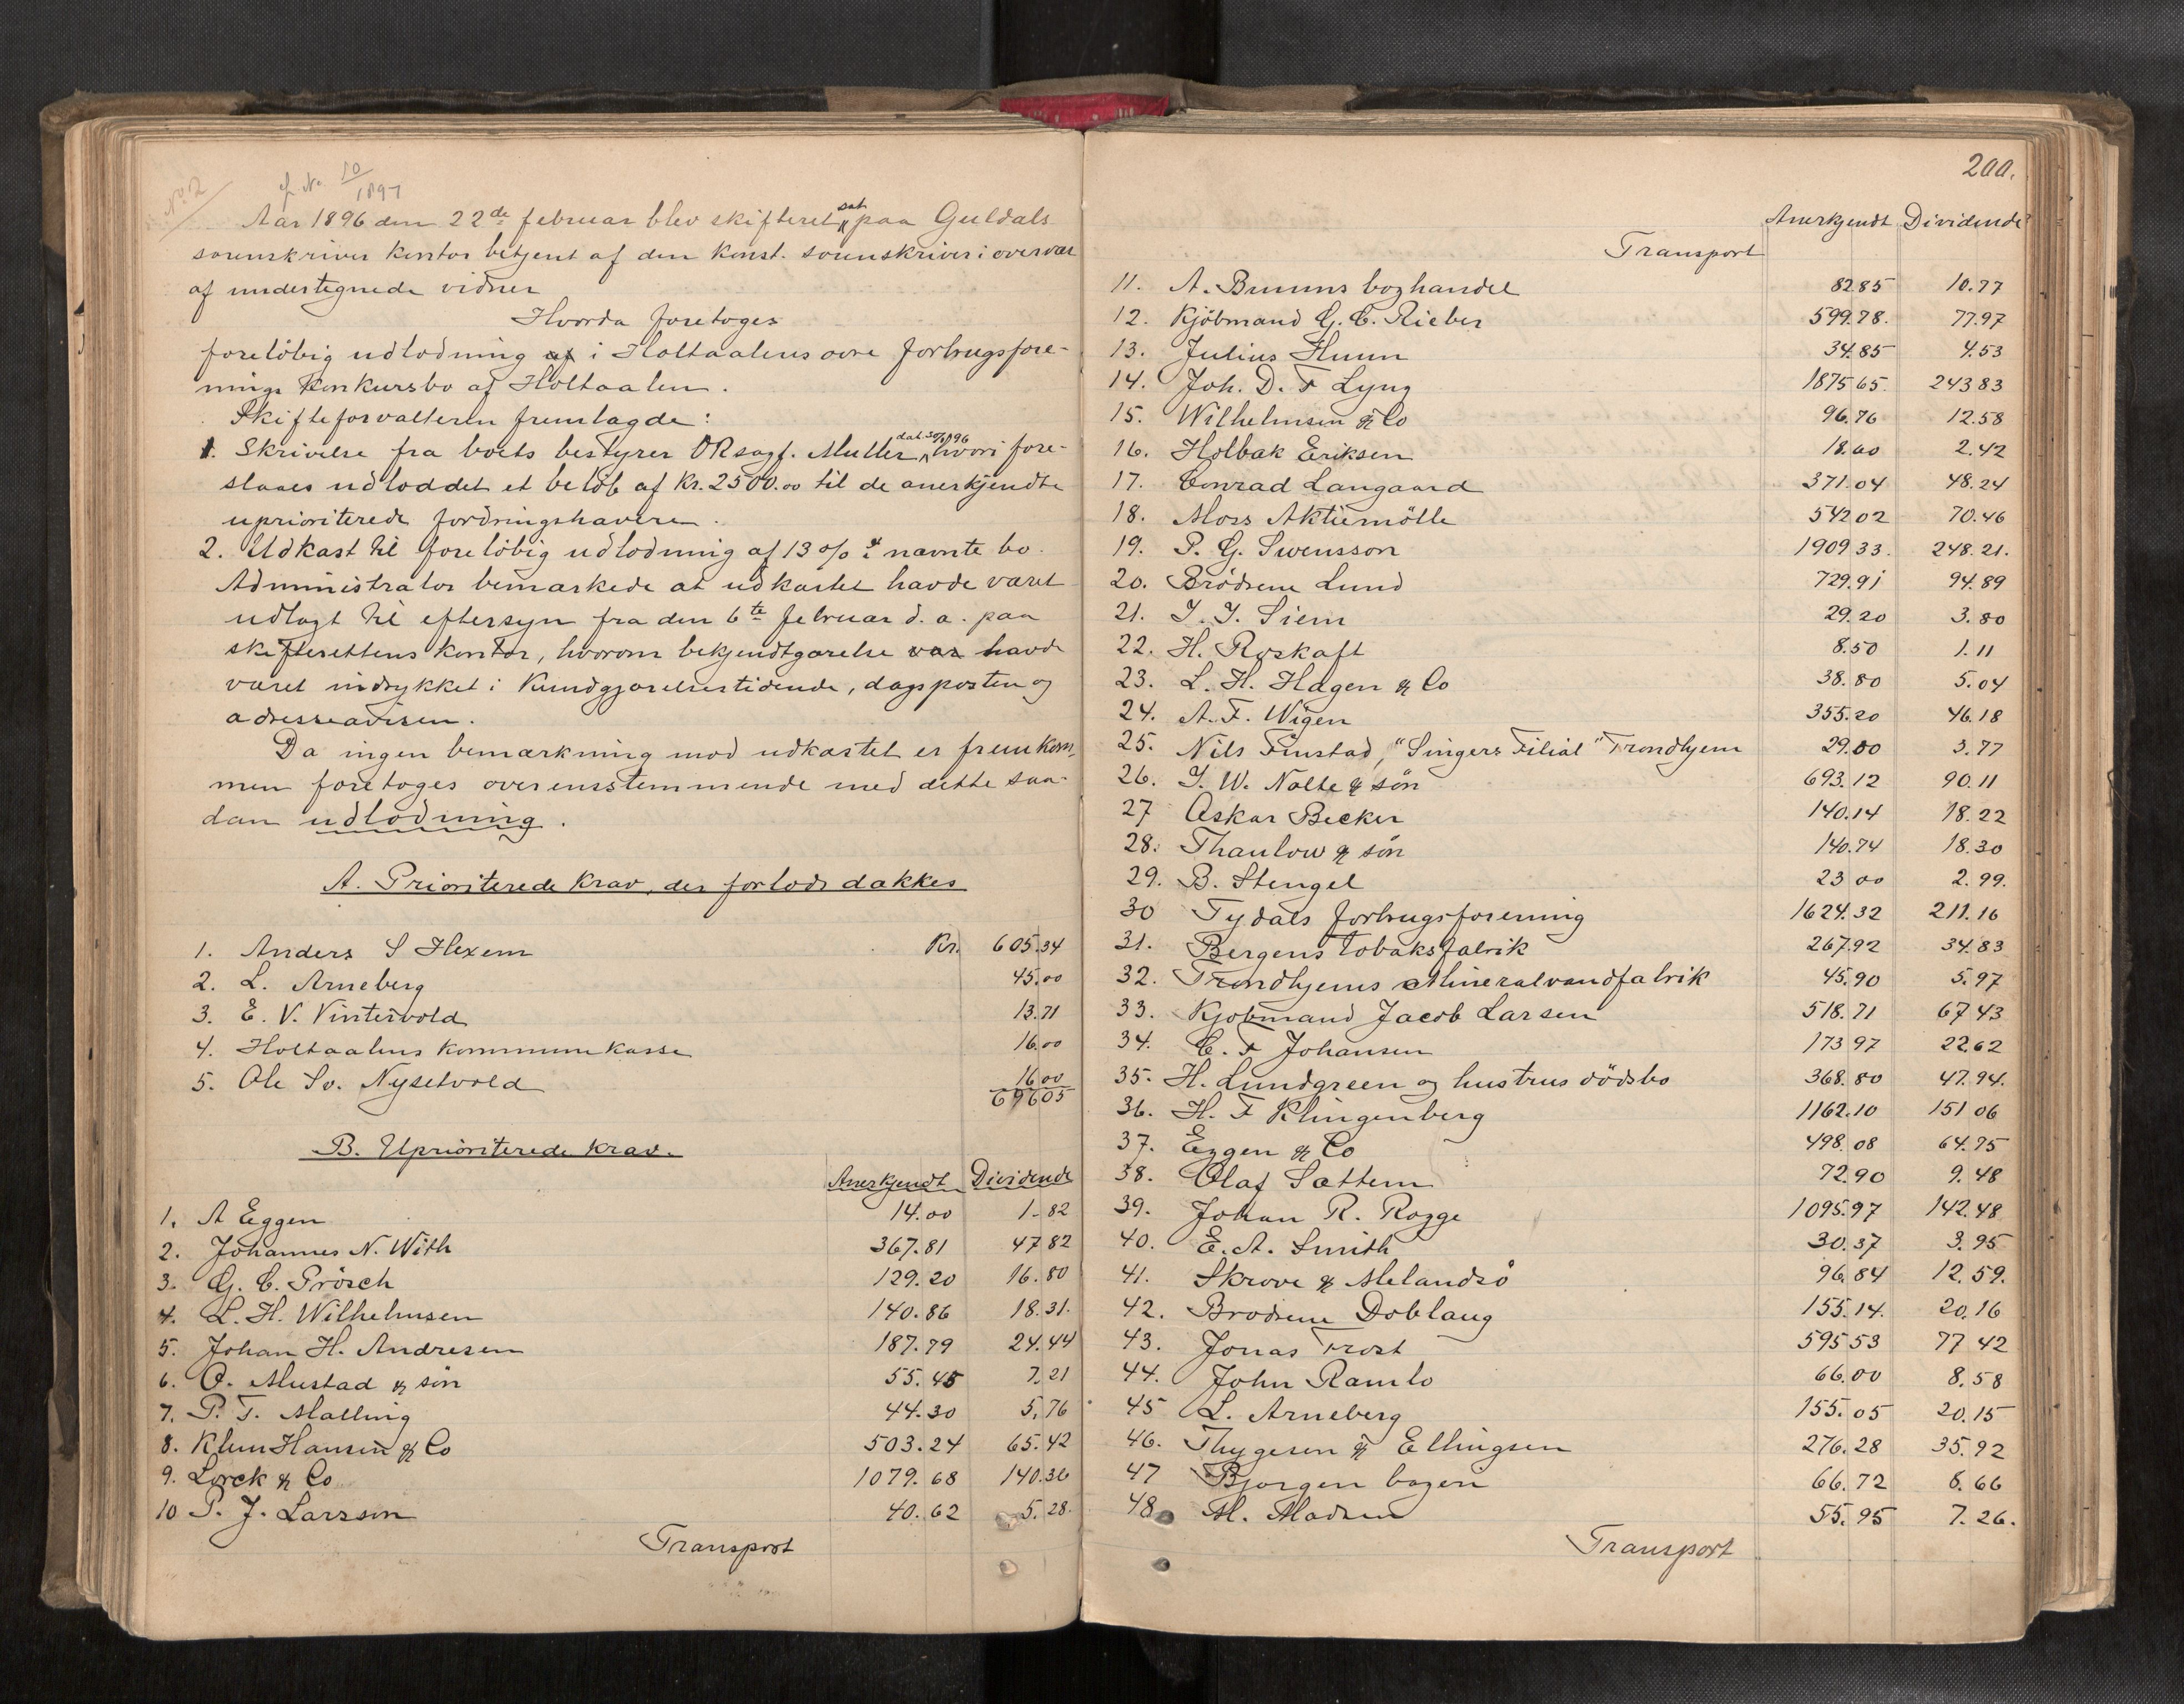 No 2
cf. No 10/1897
Aar 1896 den 22de februar blev skifteret sat paa Guldals
sorenskriver kontor betjent af den konst. sorenskriver i overvær
af undertegnede vidner
Hvorda foretoges
foreløbig udlodning af i Holtaalens øvre forbrugsfore-
nings konkursbo af Holtaalen.
Skifteforvalteren fremlagde:
1. Skrivelse fra boets bestyrer ORsagf. Muller, dat. 30/1 96 hvori fore-
slaaes udloddet et beløb af Kr. 2500.00 til de anerkjendte
uprioriterede fordringshavere.
2. Udkast til foreløbig udlodning af 13 % i nævnte bo.
Administrator bemærkede at udkastet havde været
udlagt til eftersyn fra den 6te februar d. a. paa
skifterettens kontor, hvorom bekjendtgørelse var havde
været indrykket i Kundgjørelsestidende, dagsposten og
adresseavisen.
Da ingen bemærkning mod udkastet er fremkom-
men foretoges overensstemmende med dette saa-
dan udlodning.
A. Prioriterede krav, der forlods dækkes
1. Anders S Hexem Kr. 605.34
2. L. Arneberg 45.00
3. E. V. Vintervold 13.71
4. Holtaalens kommunekasse 16.00
5. Ole Sv. Nysetvold 16 00
696 05
B. Uprioriterede krav.
Anerkjendt Dividende
1. A Eggen 14.00 1.82
2. Johannes N. With 367.81 47 82
3. G. C. Prösch 129.20 16.80
4. L. H. Wilhelmsen 140.86 18.31.
5. Johan H. Andresen 187.79 24.44
6. O. Mustad & søn 55.45 7.21
7. P. T. Malling 44.30 5.76
8. Klem Hansen & Co 503.24 65.42
9. Lorck & Co 1079.68 140.36
10 P. J. Larsson 40.62 5.28.
Transport
200.
Anerkjendt Dividende
Transport
11. A. Bruuns boghandel 82.85 10.77
12. Kjöbmand G. C. Rieber 599.78. 77.97
13. Julius Huun 34.85 4.53
14. Joh. D. F Lyng 1875 65. 243 83
15. Wilhelmsen & Co 96.76 12.58
16. Holbæk Eriksen 18.60 2.42
17. Conrad Langaard 371.04 48.24
18. Moss Aktiemölle 542 02 70.46
19. P. G. Swensson 1909 33. 248.21.
20. Brödrene Lund 729.91 94.89
21. I. I. Siem 29.20 3.80
22. H. Røskaft 8.50 1.11
23. L. H. Hagen & Co 38.80 5.04
24. A. F. Wigen 355.20 46.18
25. Nils Finstad, "Singers Filial" Trondhjem 29.00 3.77
26. I. W. Nolte & søn 693.12 90.11
27 Oskar Becker 140.14 18.22
28. Thaulow & søn 140.74 18.30
29. B. Stengel 23 00 2.99.
30 Tydals forbrugsforening 1624.32 211.16
31. Bergens tobaksfabrik 267.92 34.83
32. Trondhjems Mineralvandfabrik 45.90 5.97
33. Kjøbmand Jacob Larsen 518.71 67 43
34. C. F Johansen 173 97 22.62
35. H. Lundgreen og hustrus dödsbo 368.80 47.94.
36. H. F Klingenberg 1162.10 151 06
37. Eggen & Co 498.08 64.75
38. Olaf Sættem 72.90 9.48
39. Johan R. Rogge 1095.97 142.48
40. E. A. Smith 30.37 3.95
41. Skrove & Melandsö 96.84 12.59.
42. Brødrene Doblaug 155.14. 20.16
43. Jonas Frost 595 53 77 42
44. John Ramlo 66.00 8.58
45 L. Arneberg 155.05 20.15
46. Thygesen & Ellingsen 276.28 35.92
47 Bjørgen bageri 66.72 8.66
48 M. Madsen 55.95 7.26.
Transport